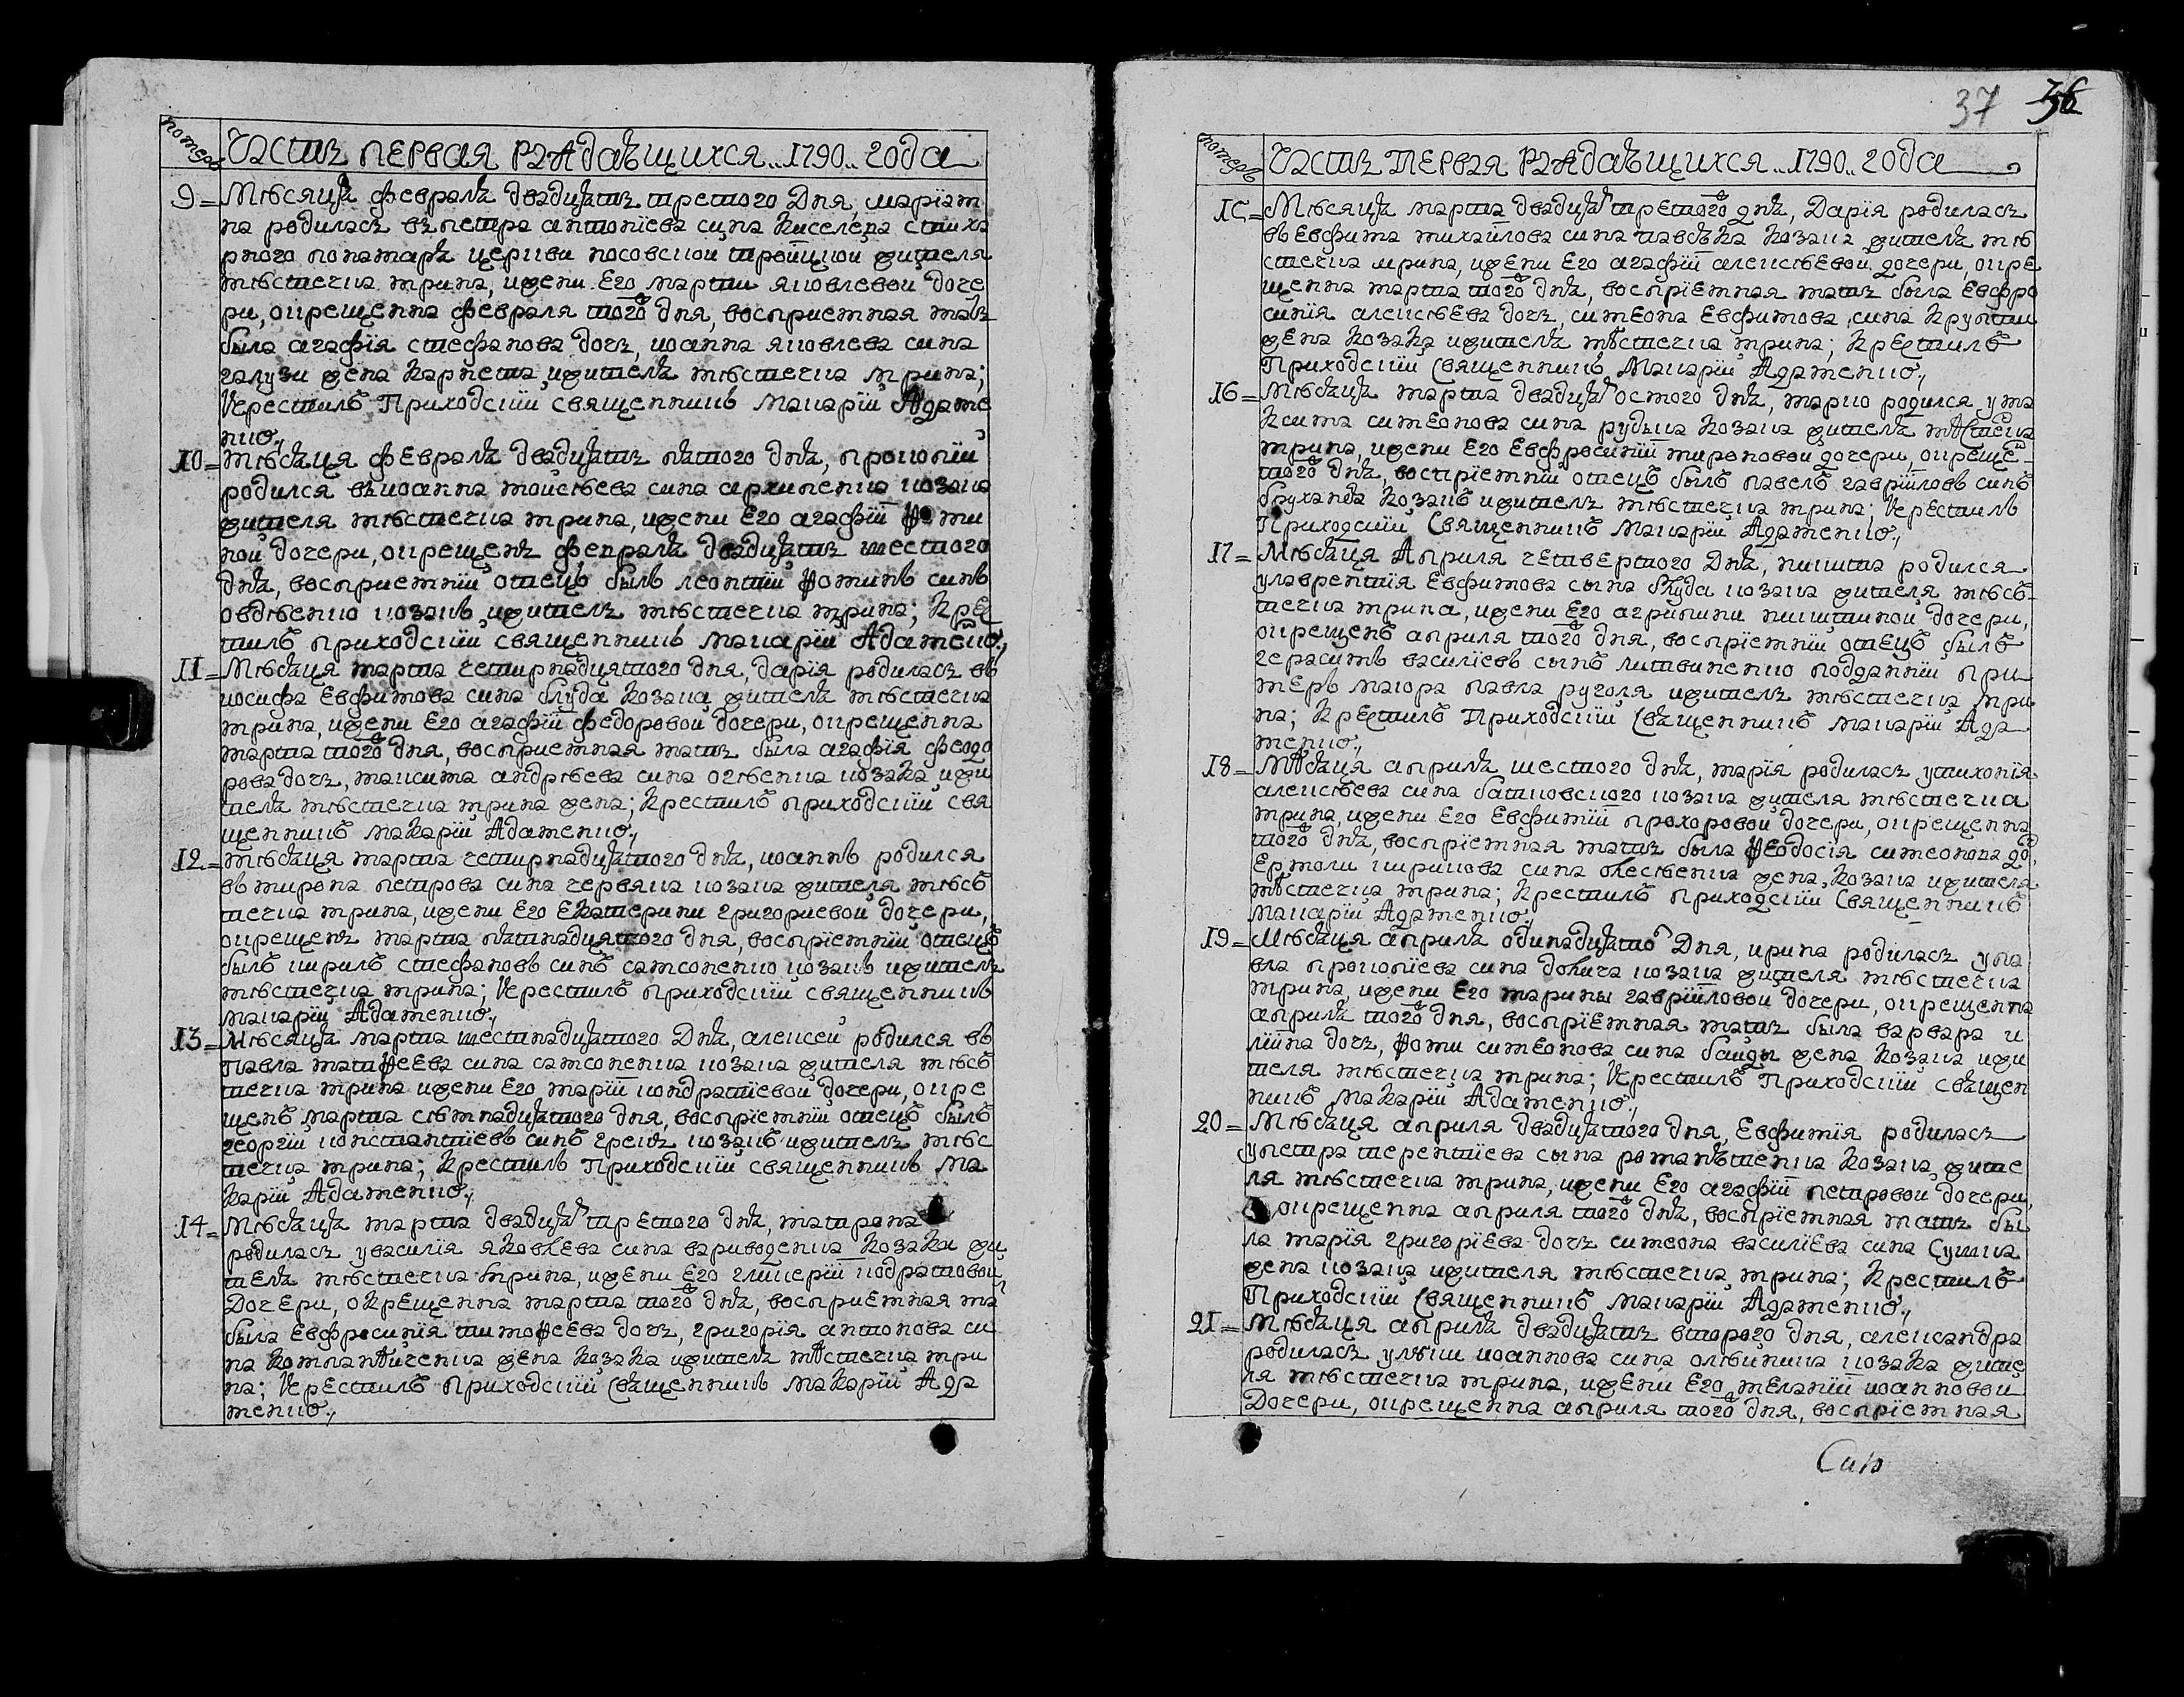 номеръ
Часть первая раждающихся .. 1790 .. года
9 = Мѣсяца февраля двадцать третого дня, маріам
на родилась въ петра антоніева сина киселена стиха
рного понамаря церкви носовской троицкой жителя
мѣстечка мрина, и жени его марти яковлевой доче
ри, окрещенна февраля того дня, восприемная мать
была агафія стефанова дочь, иоанна яковлева сина
галузи жена карпета, и жителя мѣстечка мрина;
Крестилъ Приходскій священникъ Макарій Адаме
нко.,
10 = Мѣсаця февраля двадцать пятого дня, прокопій
родился въ иоанна мойсѣева сина архипенка козака
жителя мѣстечка мрина, и жени его агафіи фоми
ной дочери, окрещенъ февраля двадцать шестого
дня, восприемній отець былъ леонтій фоминъ синъ
овдѣенко козакъ, и житель мѣстечка мрина; Кре
тилъ приходскій священникъ макарій Адаменко.,
11 = Мѣсаця марта четирнадцятого дня, дарія родилась въ
иосифа Евфимова сина блуда козака жителя мѣстечка
мрина, и жени его агафіи федоровой дочери, окрещенна
марта того дня, восприемная мать была агафія феодо
рова дочь, максима андрѣева сина огѣенка козака и жи
теля мѣстечка мрина жена; Крестилъ приходскій свя
щенникъ макарій Адаменко.,
12 = Мѣсаця марта четирнадцятого дня, иоаннъ родился
въ мирона петрова сина червяка козака жителя мѣсѣ
течка мрина, и жени его екатерини григориевой дочери,
окрещенъ марта пятнадцятого дня, воспріемній отецъ
былъ кирилъ стефановъ синъ самсоненко козакъ и житель
мѣстечка мрина; Крестилъ приходскій священникъ
макарій Адаменко.,
13 = Мѣсяца марта шестнадцятого Дня, алексей родился въ
Павла матфеева сина самсоненка козака жителя мѣсѣ
течка мрина и жени его маріи кондратіевой дочери, окре
щенъ марта сѣмнадцятого дня, воспріемній отецъ былъ
георгій константіевъ синъ грекъ козакъ и житель мѣс
течка мрина; Крестилъ Приходскій священникъ Ма
карій Адаменко.,
14 = Мѣсаца марта двадцать третого дня, матрона
родилась у василія яковлева сина вариводенка козака жи
теля мѣстечка мрина, и жени его гликеріи кодратовой
Дочери, окрещенна марта того дня, восприемная ма
была Евфросинія тимофеева дочь, григорія антонова си
на компанѣйченка жена козака и жителя мѣстечка мри
на; Крестилъ приходскій священникъ макарій Ада
менко.,
37 36
номеръ
Часть Первая Раждающихся .. 1790 .. года
15 = Мѣсяца марта двадцать третого дня, Дарія родилась
въ Евфима михайлова сина павсѣка козака жителя мѣ
стечка мрина, и жени его агафіи алексѣевой дочери, окре
щенна марта того дня, воспріемная мать была Евфро
синія алексѣева дочь, симеона Евфимова сина крупки
жена козака и жителя мѣстечка мрина; Крестилъ
Приходскій Священникъ Макарій Адаменко.,
16 = Мѣсаца марта двадцать осмого дня, марко родился у ма
ксима симеонова сина рудька козака жителя мѣстечка
мрина, и жени его Евфросиніи мироновой дочери, окреще
того дня, воспріемній отецъ былъ павелъ гавріиловъ синъ
бруханда козакъ и житель мѣстечка мрина; Крестилъ
Приходскій Священникъ макарій Адаменко.,
17 = Мѣсаця Априля четвертого Дня, никита родился
у лаврентія Евфимова сына блуда козака жителя мѣсѣ
течка мрина, и жени его агрипини никитиной дочери,
окрещенъ априля того дня, воспріемній отецъ былъ
герасимъ василіевъ сынъ литвиненко подданній при
меръ маіора павла руголя и житель мѣстечка мри
на; Крестилъ Приходскій Священникъ макарій Ада
менко.,
18 = Мѣсаця априля шестого дня, марія родилась у тихонія
алексѣева сина батиовского козака жителя мѣстечка
мрина, и жени его Евфиміи прохоровой дочери, окрещенна
того дня, воспріемная мать была Феодосія симеонова до,
Ермоли кирикова сина олесѣенка жена, козака и жителя
мѣстечка мрина; Крестилъ приходскій Священникъ
макарій Адаменко.,
19 = Мѣсаця априля одинадцято Дня, ирина родилась у па
вла прокопіева сина довгича козака жителя мѣстечка
мрина, и жени его марины гавріиловой дочери, окрещенна
априля того дня, воспріемная мать была варвара и
лііна дочь, фоми симеонова сина байды жена козака и жи
теля мѣстечка мрина; Крестилъ Приходскій священ
никъ макарій Адаменко.,
20 = Мѣсаця априля двадцятого дня, Евфимія родилась
у петра терентіева сына романьтенка козака жите
ля мѣстечка мрина, и жени его агафіи петровой дочери,
окрещенна априля того дня, воспріемная мать бы
ла марія григоріева дочь симеона василіева сина Сушка
жена козака и жителя мѣстечка мрина; Крестилъ
Приходскій Священникъ макарій Адаменко.,
21 = Мѣсаця априля двадцать второго дня, александра
родилась у луки иоаннова сина олѣйника козака жите
ля мѣстечка мрина, и жени его меланіи иоанновой
Дочери, окрещенна априля того дня, воспріемная